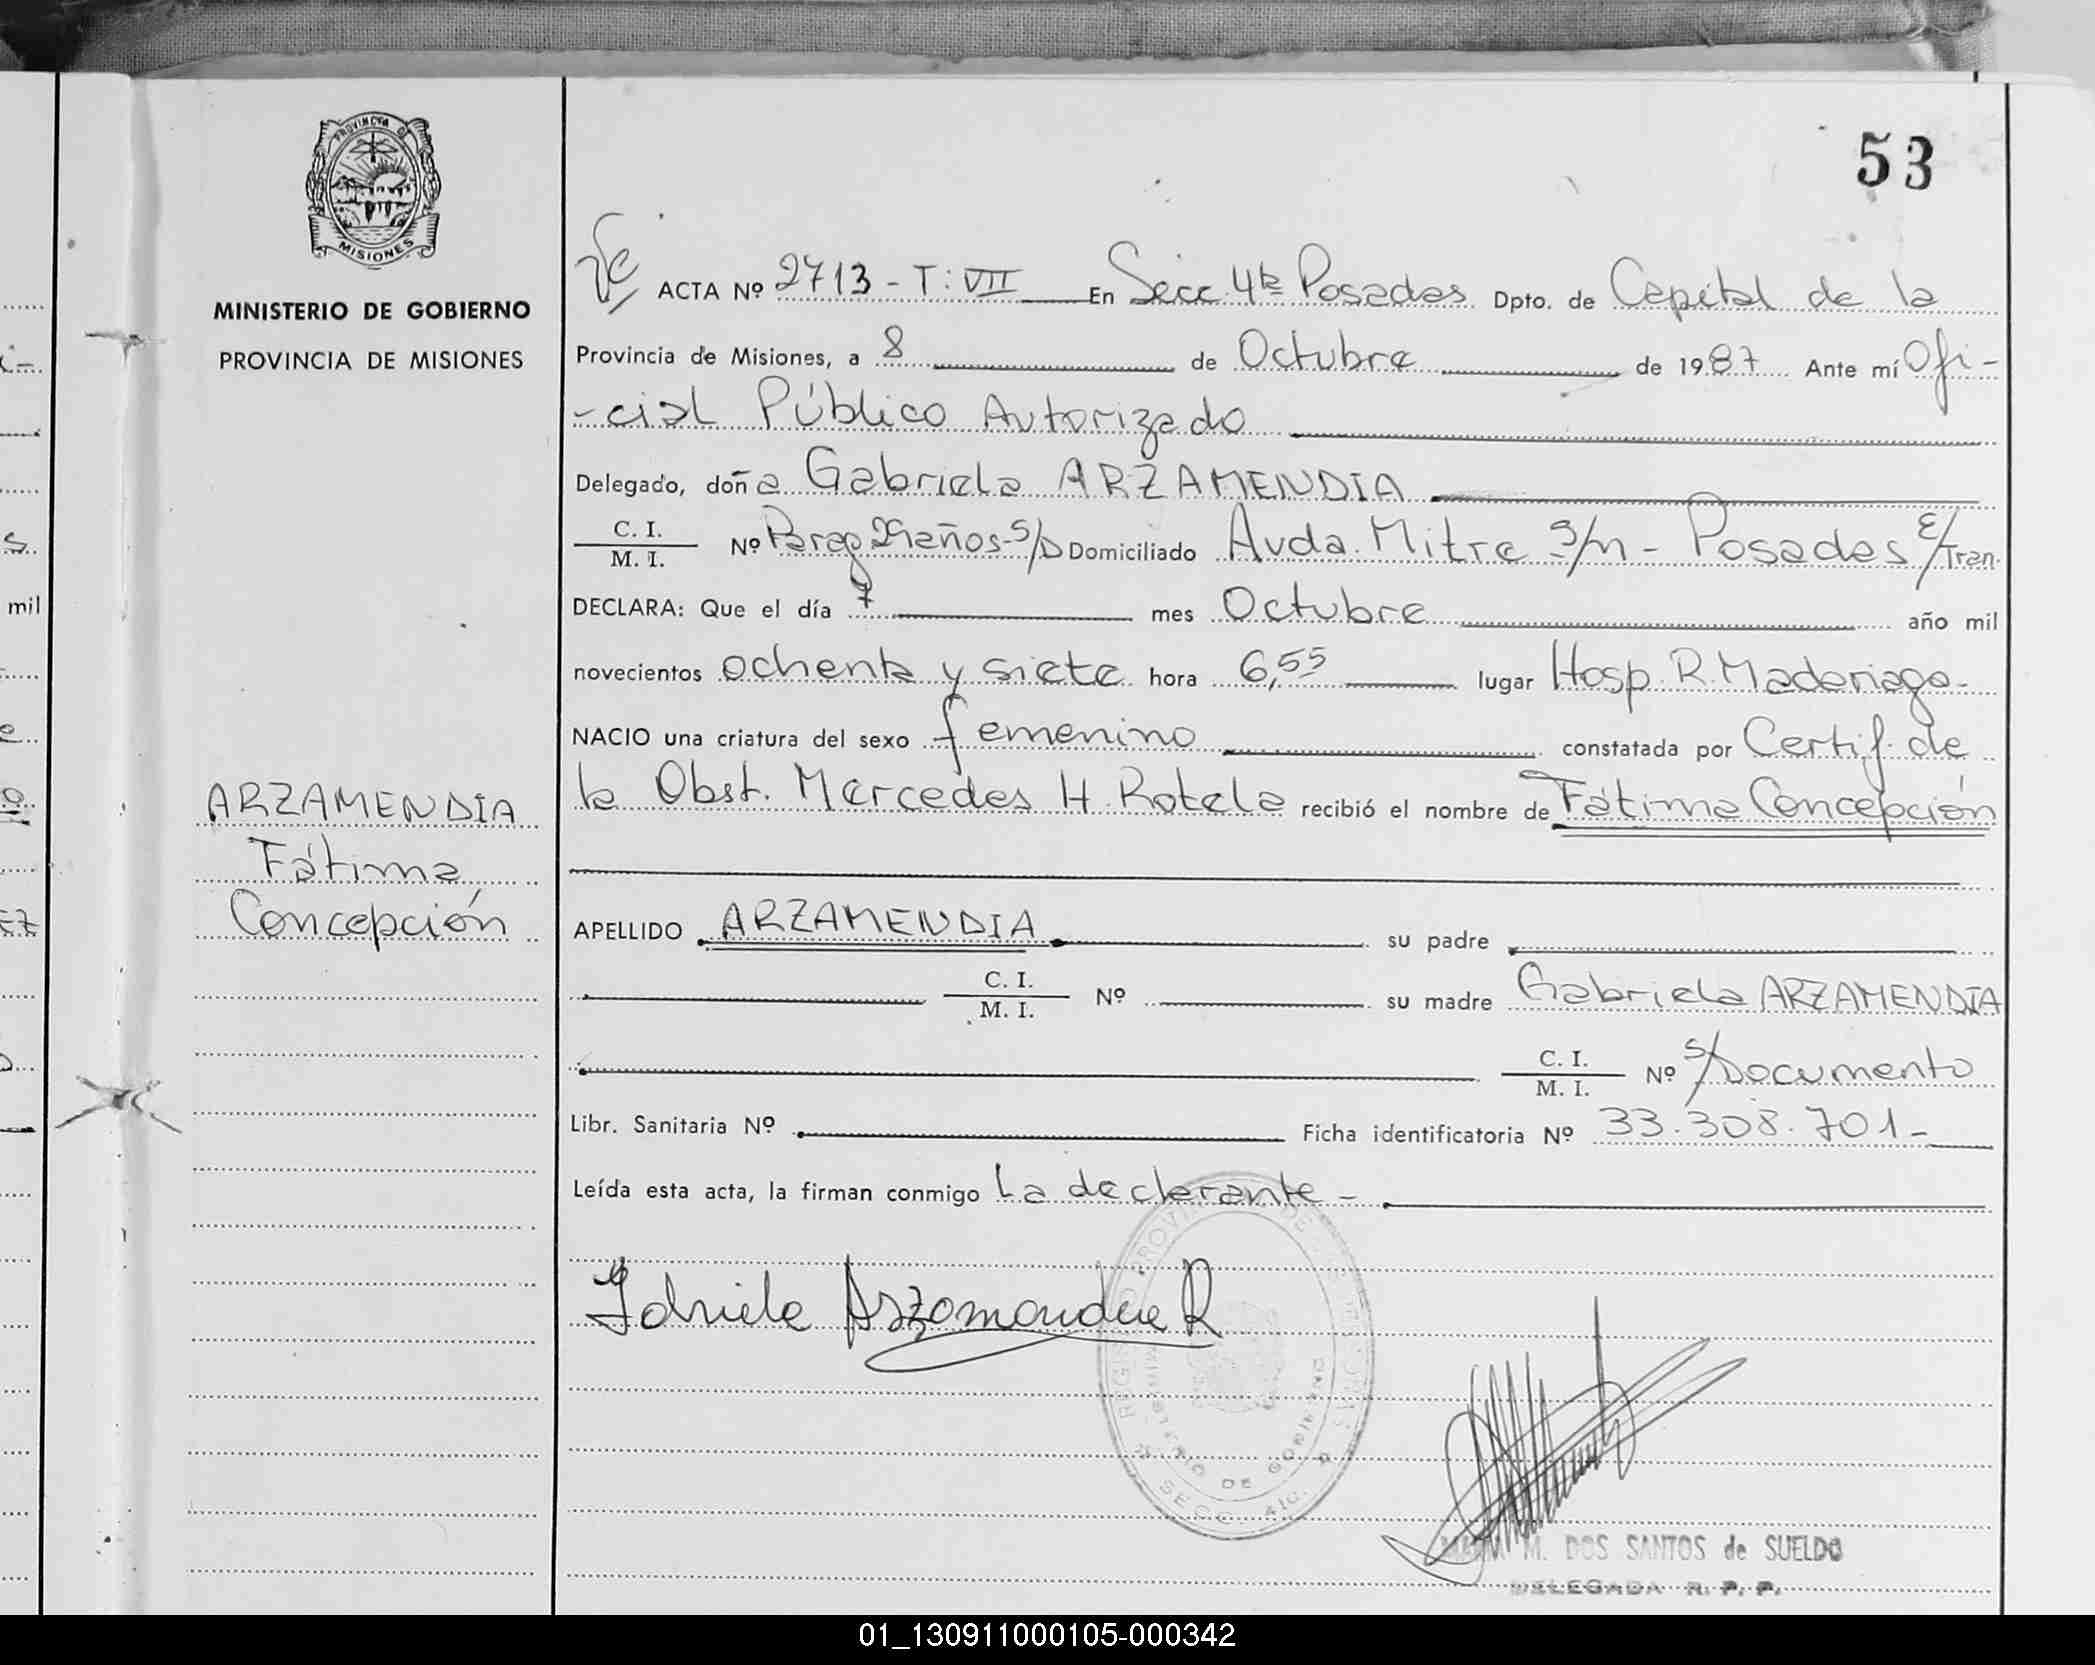 PROVINCIA DE
MISIONES
MINISTERIO DE GOBIERNO
PROVINCIA DE MISIONES
ARZAMENDIA
Fátima
Concepción
53
ACTA Nº 2713 - T: VII En Secc. 4ta Posadas Dpto. de Capital de la
Provincia de Misiones, a 8 de Octubre de 1987 Ante mí Ofi-
-cial Público Autorizado
Delegado, doña Gabriela ARZAMENDIA
C. I.
M. I. Nº Parag 29 años - S/D Domiciliado Avda. Mitre S/n - Posadas E/Tran.
DECLARA: Que el día 7 mes Octubre año mil
novecientos ochenta y siete hora 6,55 lugar Hosp. R. Madariaga -
NACIO una criatura del sexo femenino constatada por Certif. de
la Obst. Mercedes H. Rotela recibió el nombre de Fátima Concepción
APELLIDO ARZAMENDIA su padre
C. I.
M. I. Nº su madre Gabriela ARZAMENDIA
C. I.
M. I. Nº S/Documento
Libr. Sanitaria Nº Ficha identificatoria Nº 33.308.701 -
Leída esta acta, la firman conmigo La declarante -
Gabriela Arzamendia R
M. DOS SANTOS de SUELDO
DELEGADA R. P. P.
01_130911000105-000342